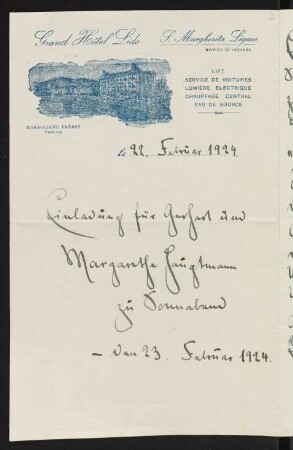 Grand Hôtel Lido
S. Margherita Ligure
LIFT
SERVICE DE VOITURES
LUMIÈRE ELECTRIQUE
CHAUFFAGE CENTRAL
EAU DE SOURCE
MARAGLIANO FRÈRES
le 22. Februar 1924.
Einladung für Gerhart und
Margarethe Hauptmann
zu Sonnabend
- den 23. Februar 1924.